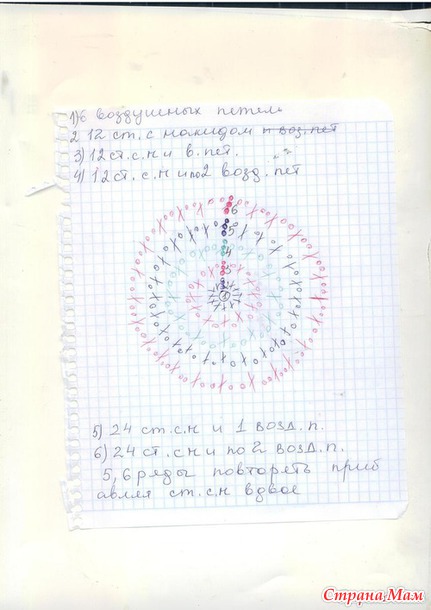 1) 6 воздушных петель
2 12 ст. с накидом н воз. пет
3) 12 ст. с.н и в. пет
4) 12 ст. с.н и по 2 возд. пет
6
5
4
3
5) 24 ст. с.н и 1 возд. п.
6) 24 ст. с н и по 2 возд. п.
5, 6 ряды повтореть приб
авляя ст. с.н вдвое
Страна Мам